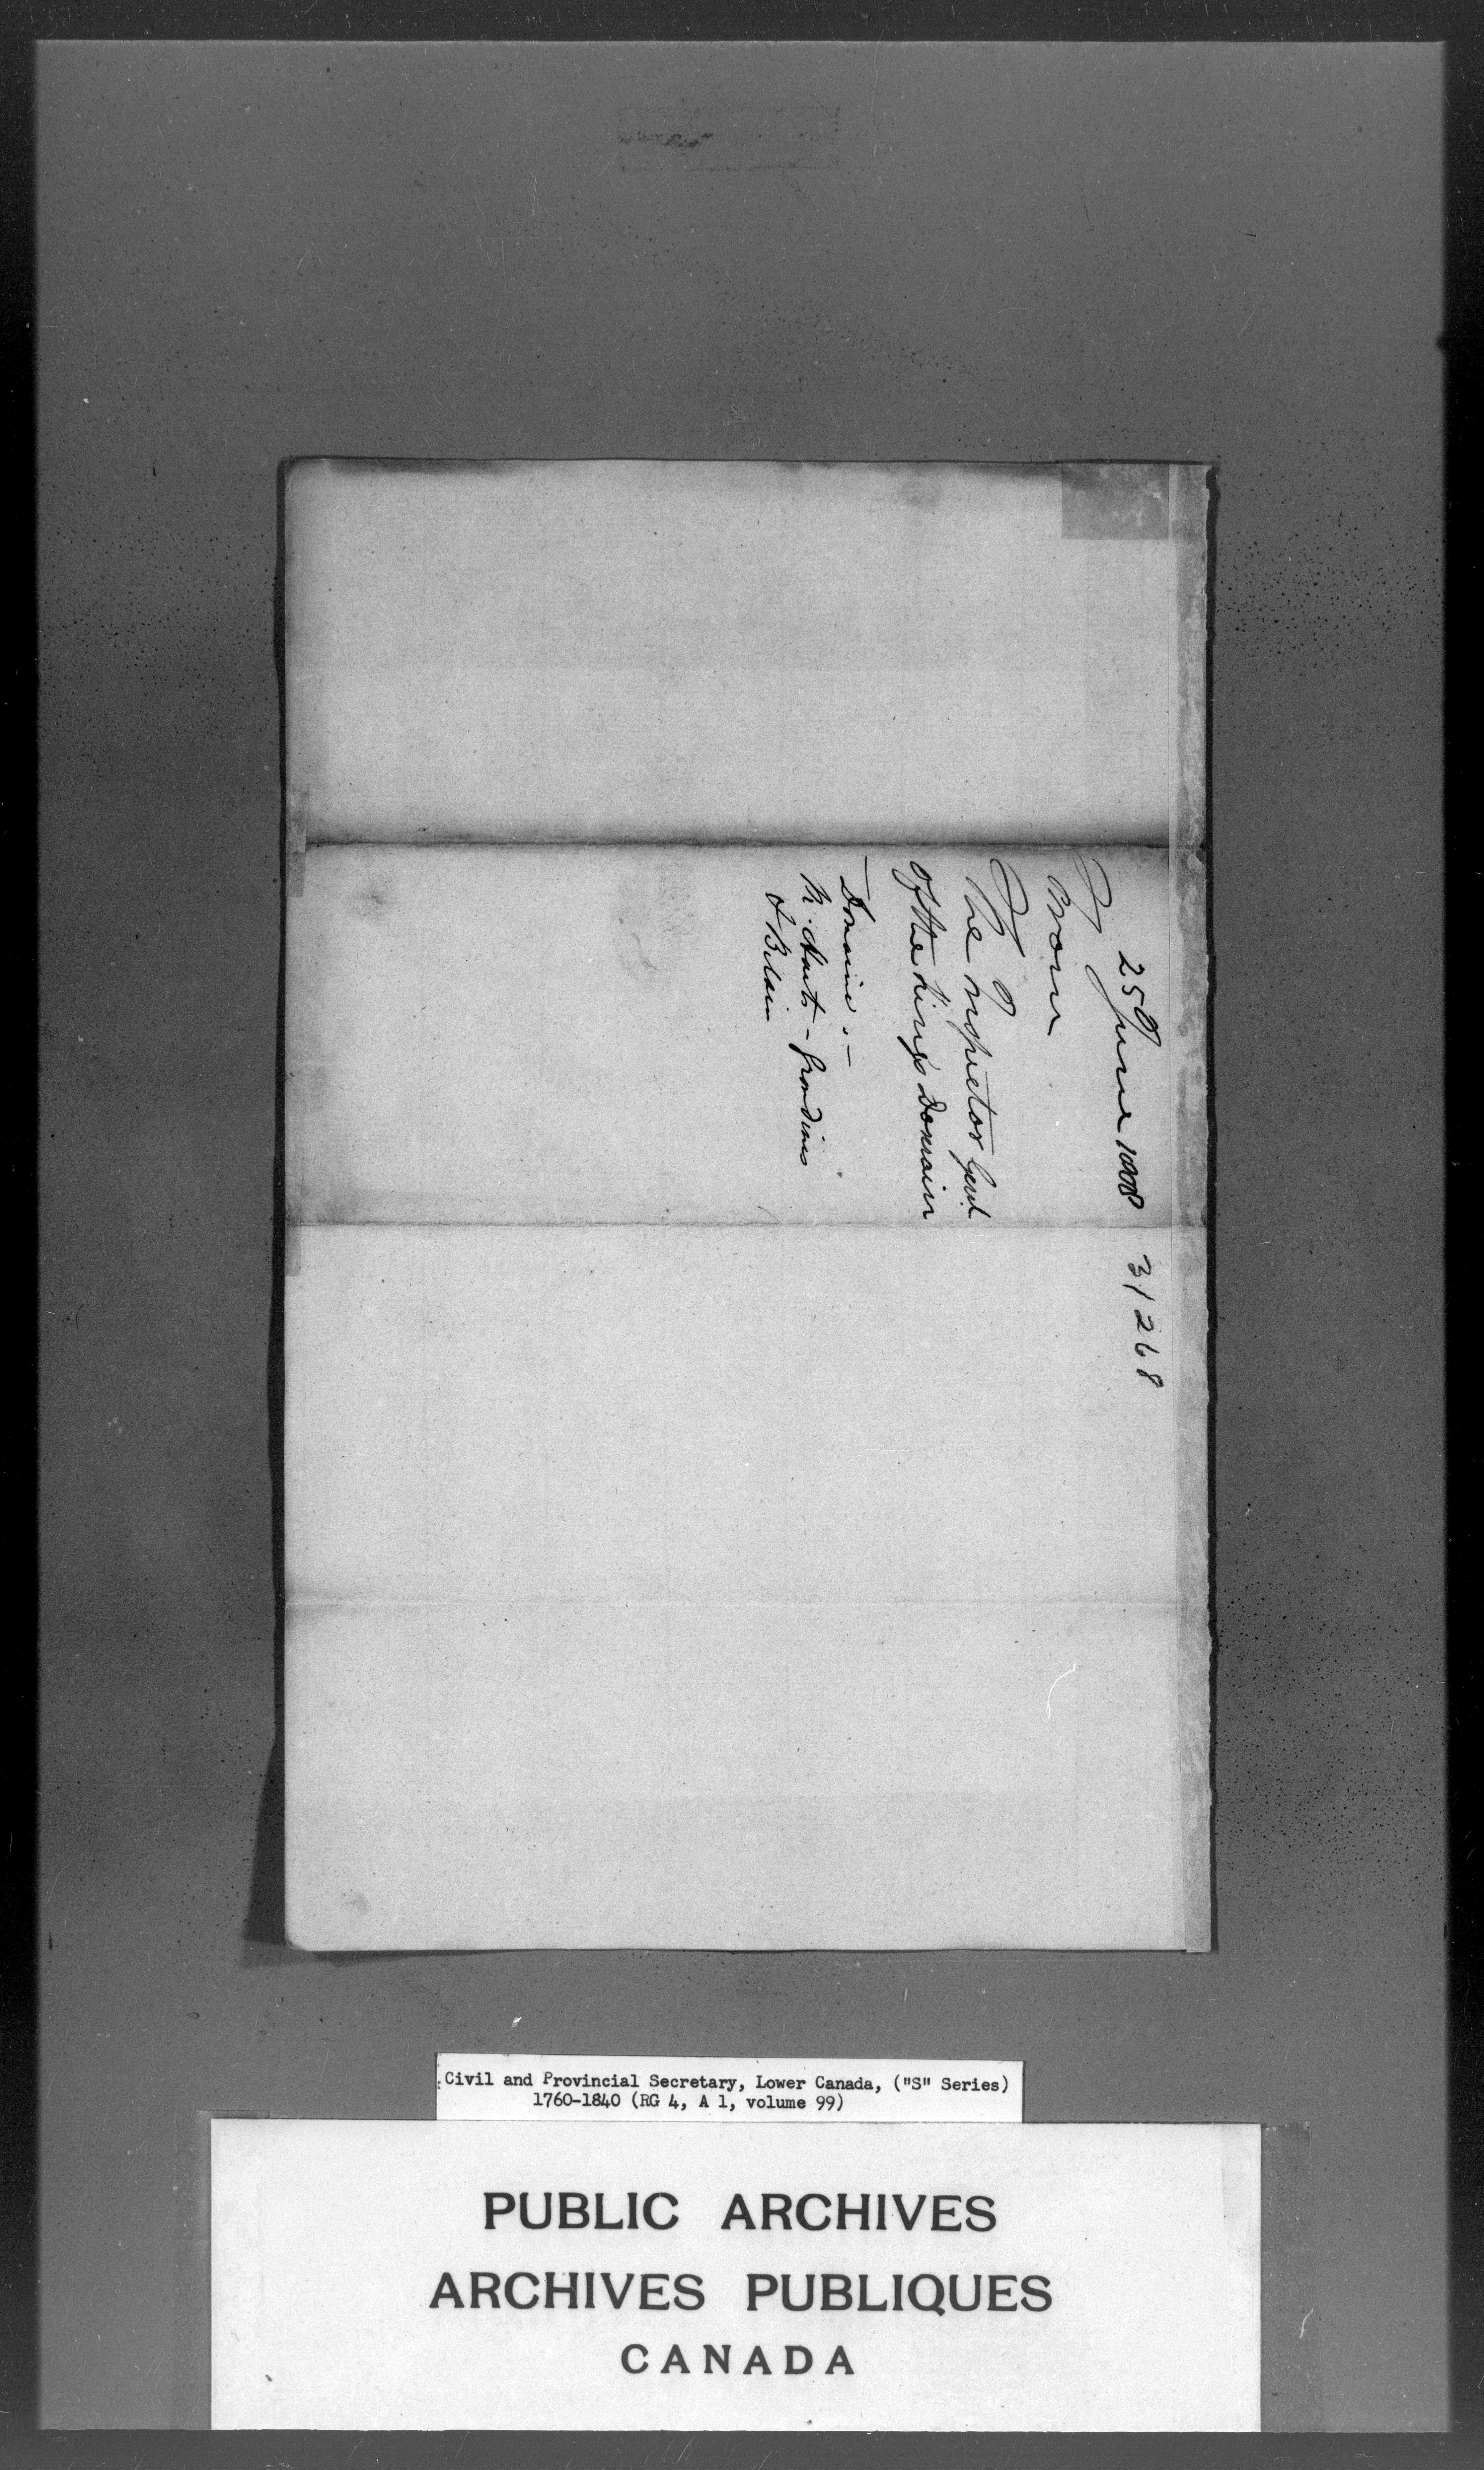 25 June 1808
31268
From
The Inspector Genl
Of the Kings Domain
Domaine :-
Grondines
Civil and Provincial Secretary, Lower Canada, ("S" Series)
1760-1840 (RG 4, A 1, volume 99)
PUBLIC ARCHIVES
ARCHIVES PUBLIQUES
CANADA